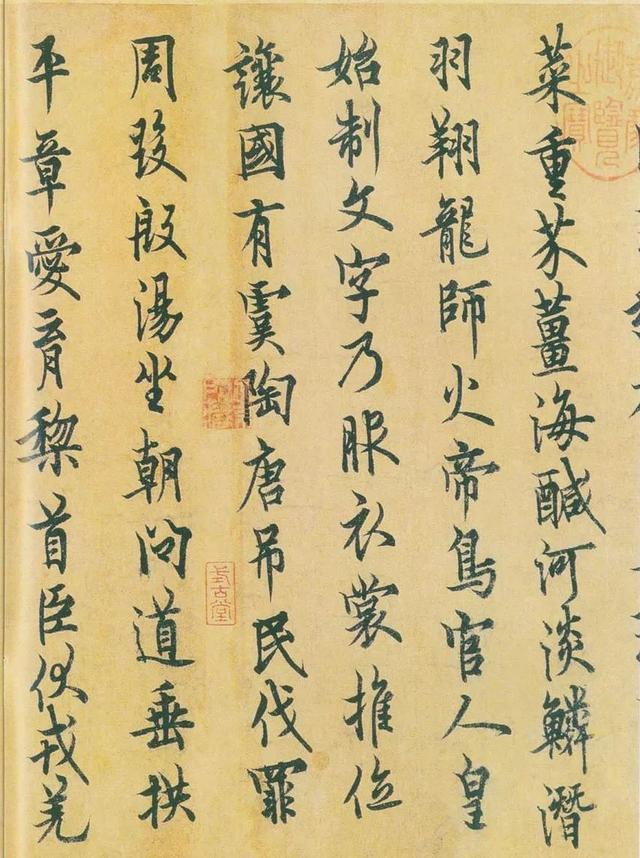 菜重芥薑海醎河淡鱗潛
羽翔龍師火帝鳥官人皇
始制文字乃服衣裳推位
讓國有虞陶唐吊民伐罪
周發殷湯坐朝問道垂拱
平章愛育黎首臣伏戎羌
式古堂